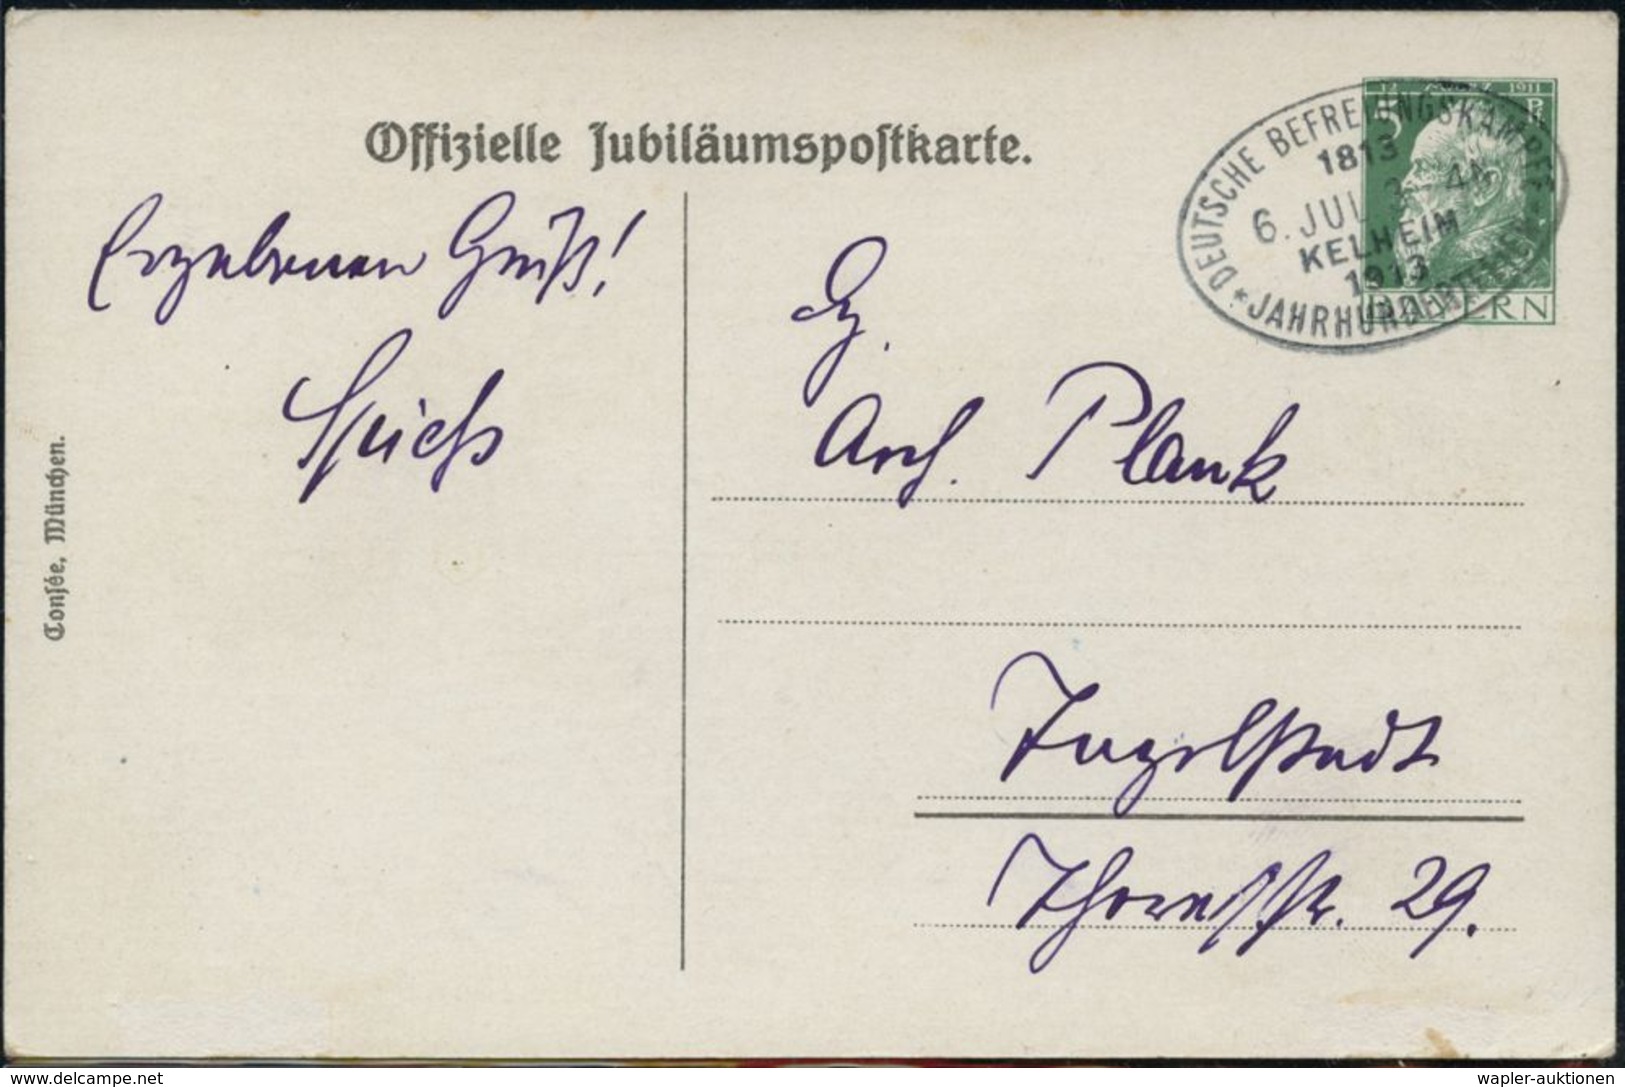 Offizielle Jubiläumspostkarte.
12 1911
5 Pf
BAYERN
* DEUTSCHE BEFREIUNGSKÄMPFE *
1813
6. JUL 3 - 4N
KELHEIM
1913
JAHRHUNDERTFEIER
Ergebenen Gruß!
Spieß
Arch. Plank
Ingolstadt
Theresstr. 29.
Consée, München.
delcampe.net
wapler-auktionen